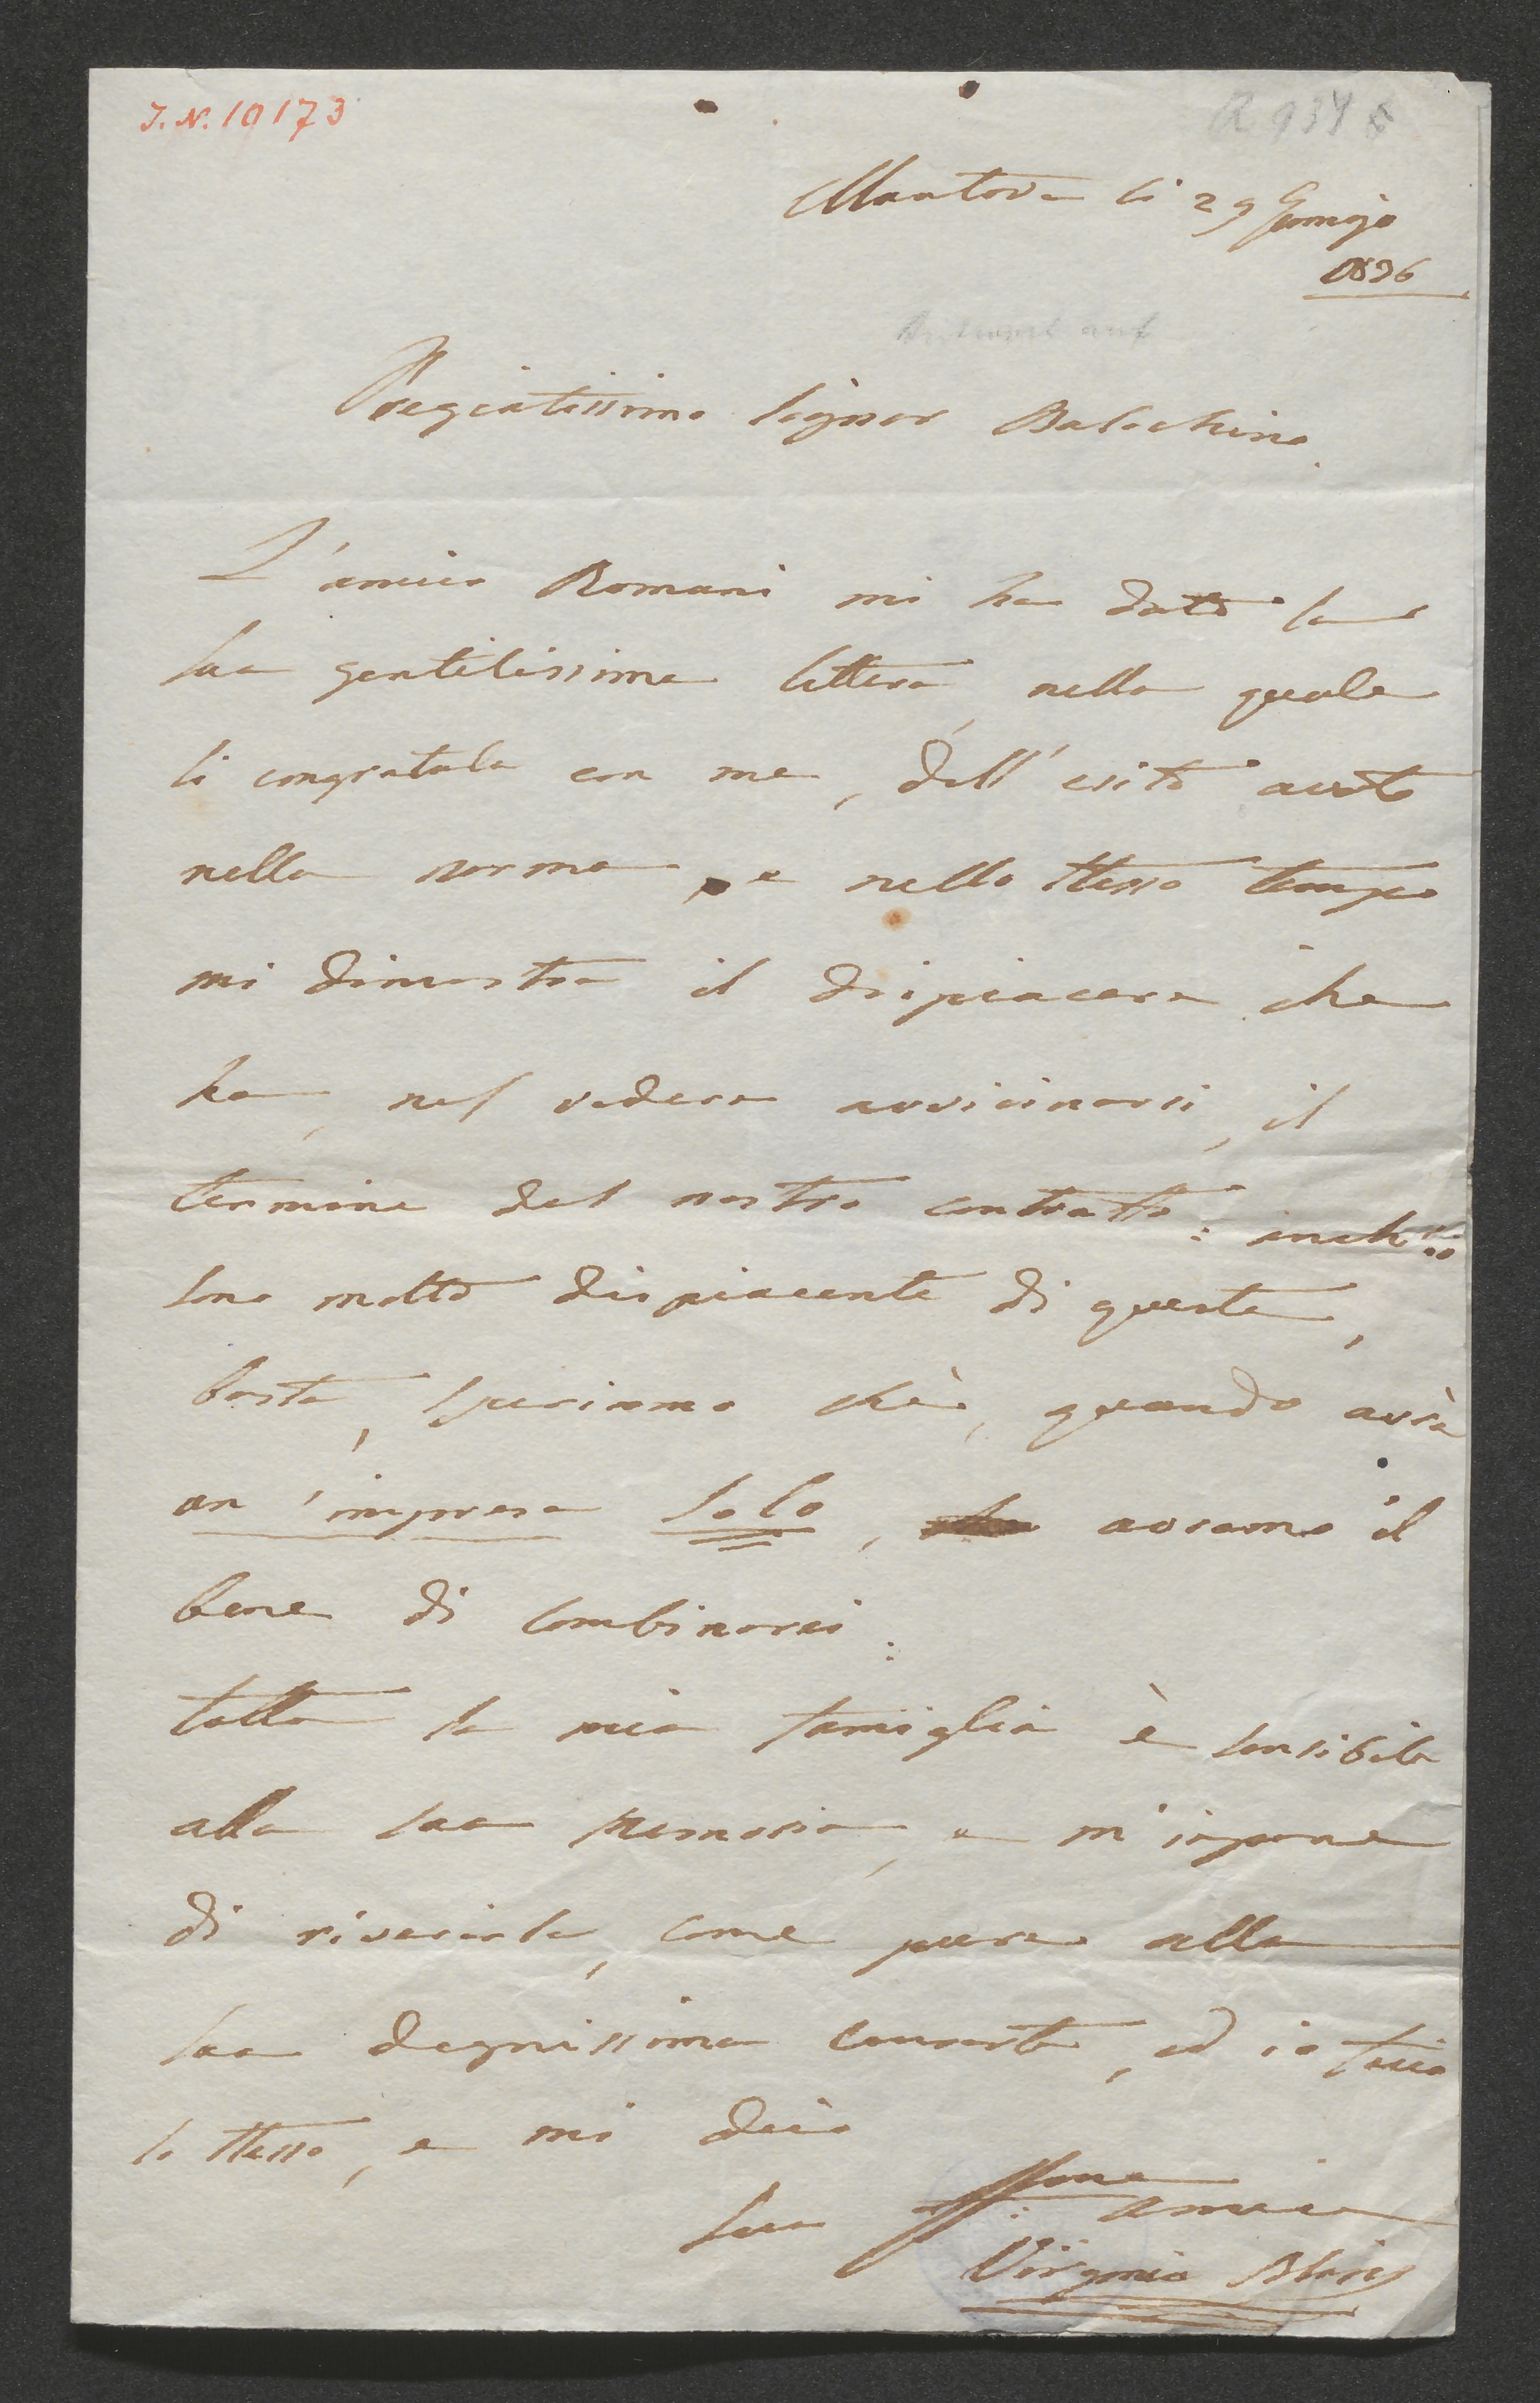 J.N. 10173
Mantova li 29 Genajo
1836
Pregiatissimo Signor Balochino.
L'amico Romani mi ha dato la
sua gentilissima lettera, nella quale
si congratula con me, dell'esito avuto
nella norma, e nello stesso tempo
mi dimostra il dispiacere che
ha, nel vedere avvicinarsi, il
termine del nostro contratto: anch'io
sono molto dispiacente di questo,
basta, speriamo chè, quando avrà
un'impresa solo, avremo il
bene di combinarci:
tutta la mia famiglia è sensibile
alla sua memoria, e m'impone
di riverirla, come pure alla
sua degnissima consorte, ed io faccio
lo stesso, e mi dico
Sua aff:ma amica
Virginia Blasis